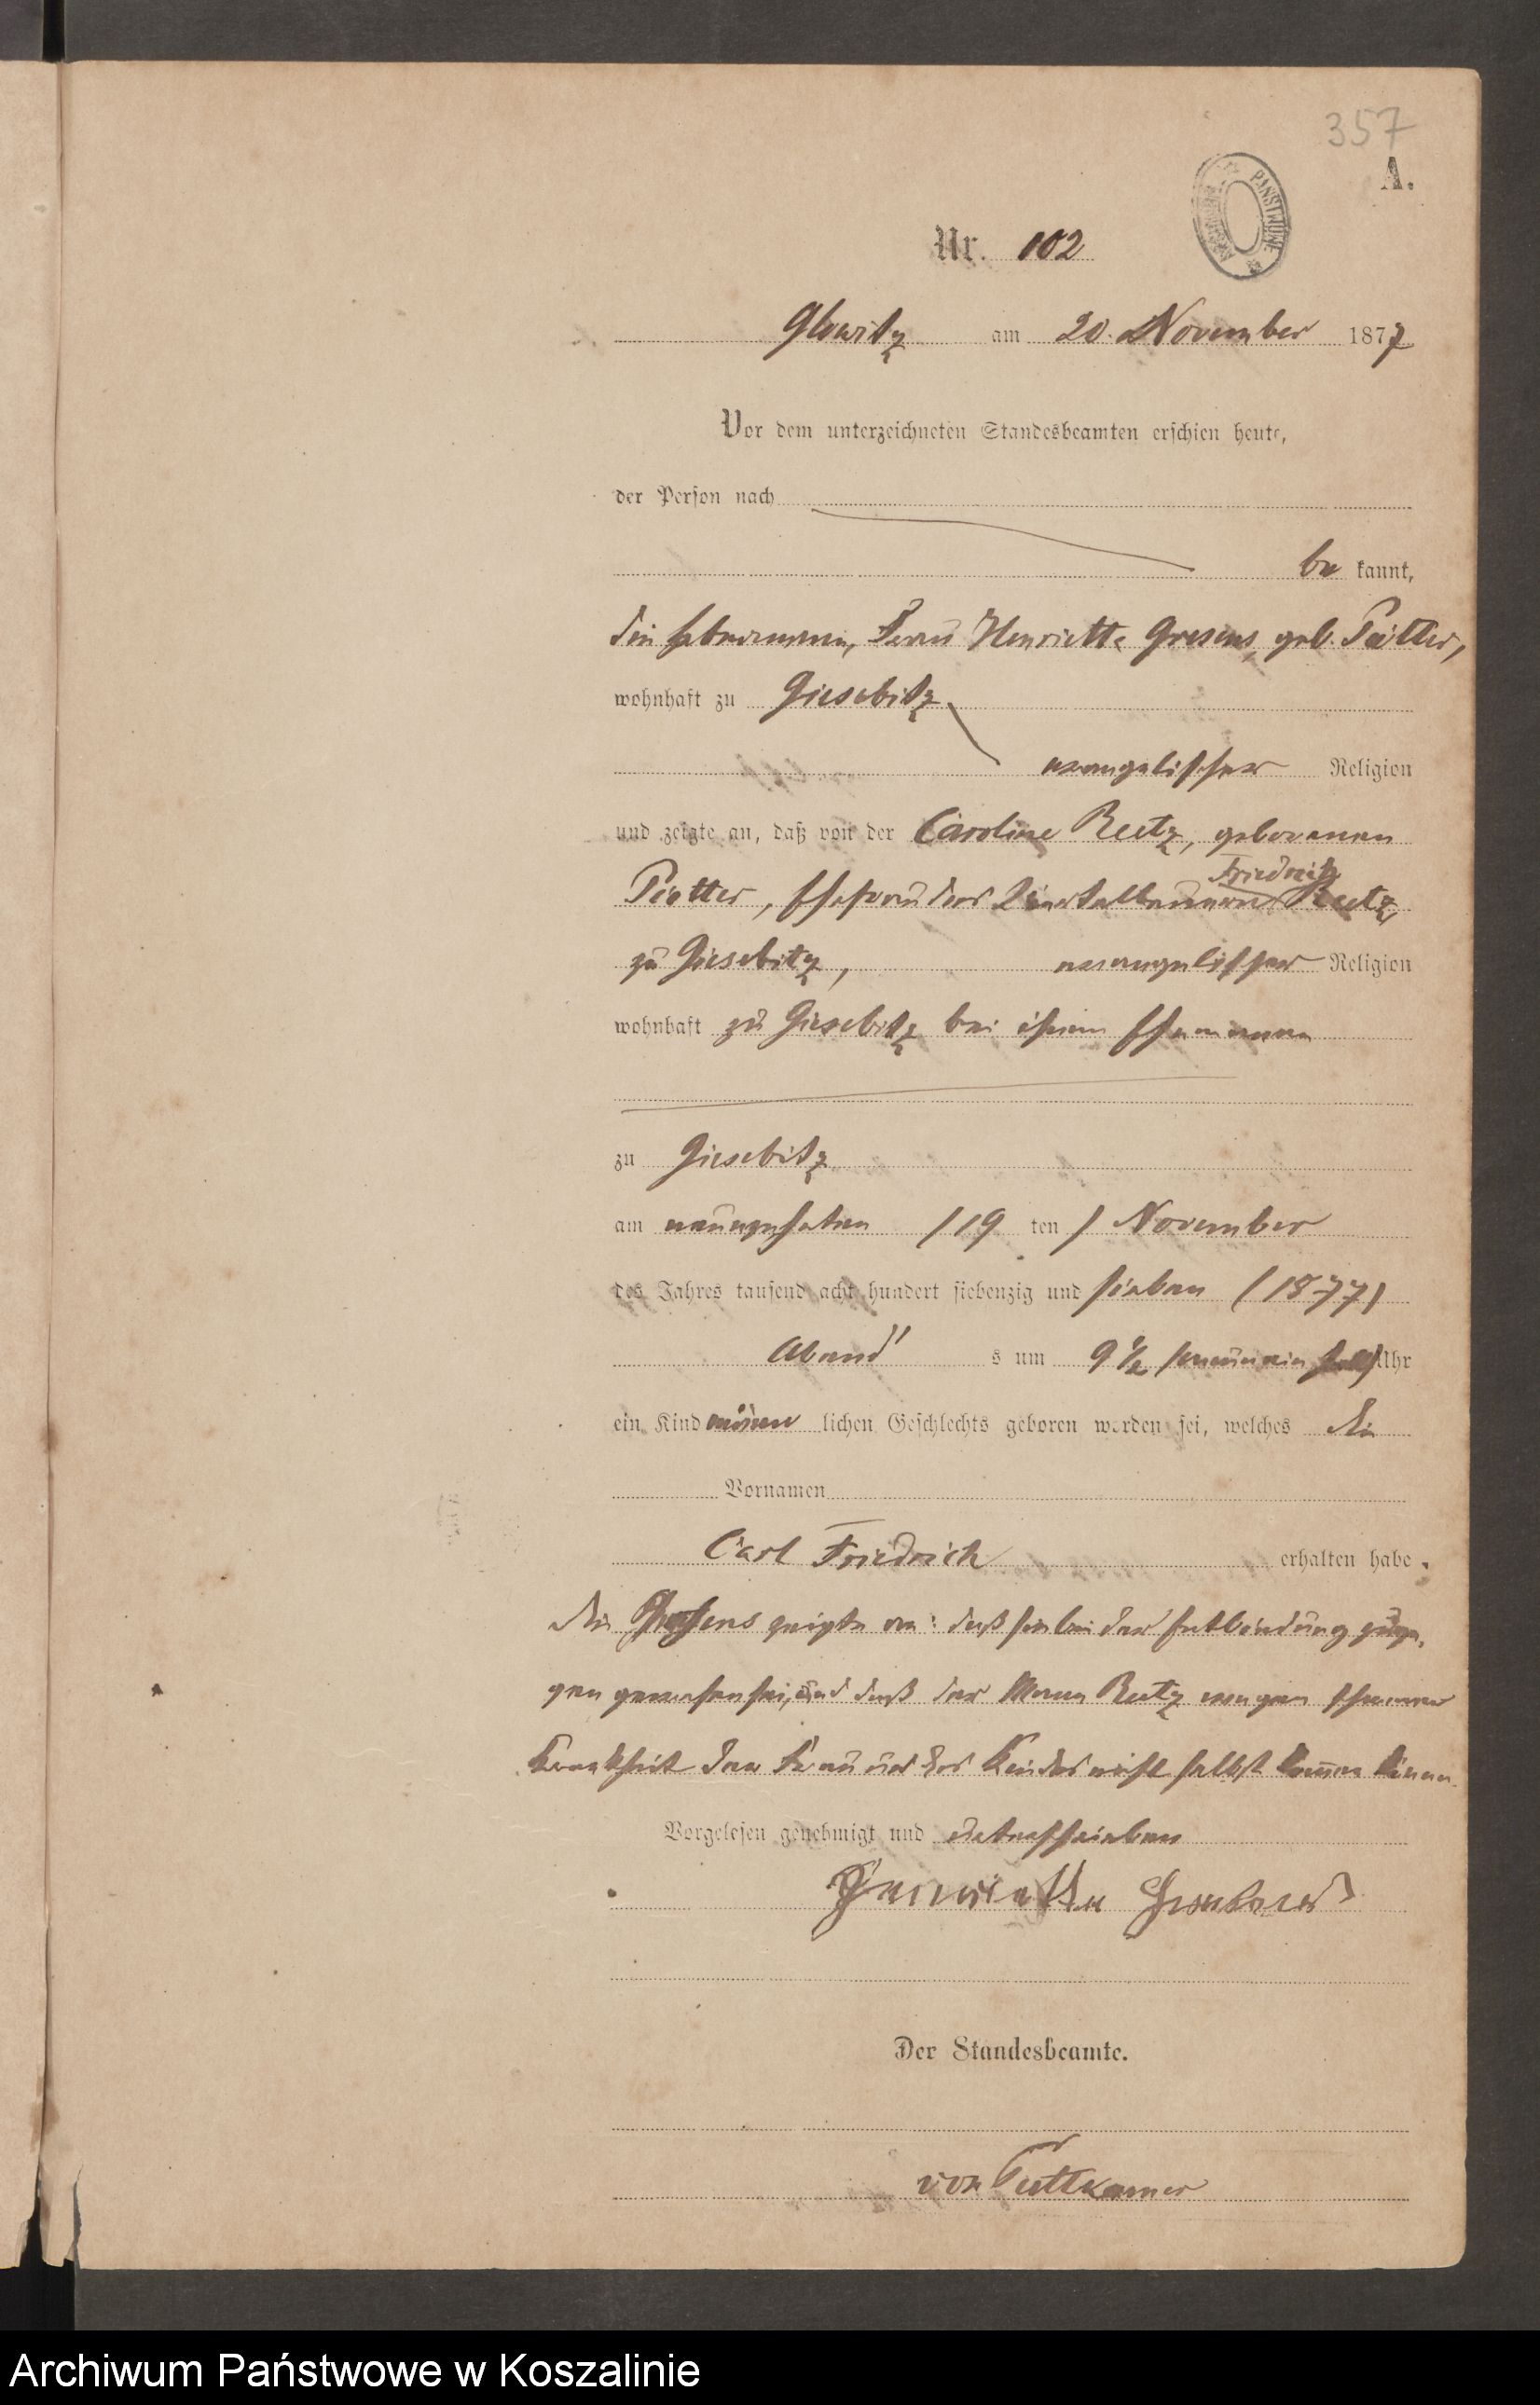 357
A.
PAŃSTWOWE
Nr. 102
Glowitz am 20. November 1877
Vor dem unterzeichneten Standesbeamten erschien heute,
der Person nach
be kannt,
die Hebamme, Frau Henriette Gresens, geb. Pätter,
wohnhaft zu Giesebitz
evangelischer Religion
und zeigte an, daß von der Caroline Reetz, geborenen
Friedrich
Piotter, Ehefrau des Viertelbauern Reetz,
zu Giesebitz, evangelischer Religion
wohnhaft zu Giesebitz bei ihrem Ehemanne
zu Giesebitz
am neunzehnten /19 ten/ November
des Jahres tausend acht hundert siebenzig und sieben (1877)
Abend s um 9 ½ /neunein halb/ Uhr
ein Kind männ lichen Geschlechts geboren worden sei, welches die
Vornamen
Carl Friedrich erhalten habe.
Die Gresens zeigte an: daß sie bei der Entbindung zuge,
gen gewesen sei, und daß der Mann Reetz wegen schwerer
Krankheit der Frau und des Kindes nicht selbst kommen könne.
Vorgelesen genehmigt und unterschrieben
Henriette
Der Standesbeamte.
von Puttkamer
Archiwum Państwowe w Koszalinie